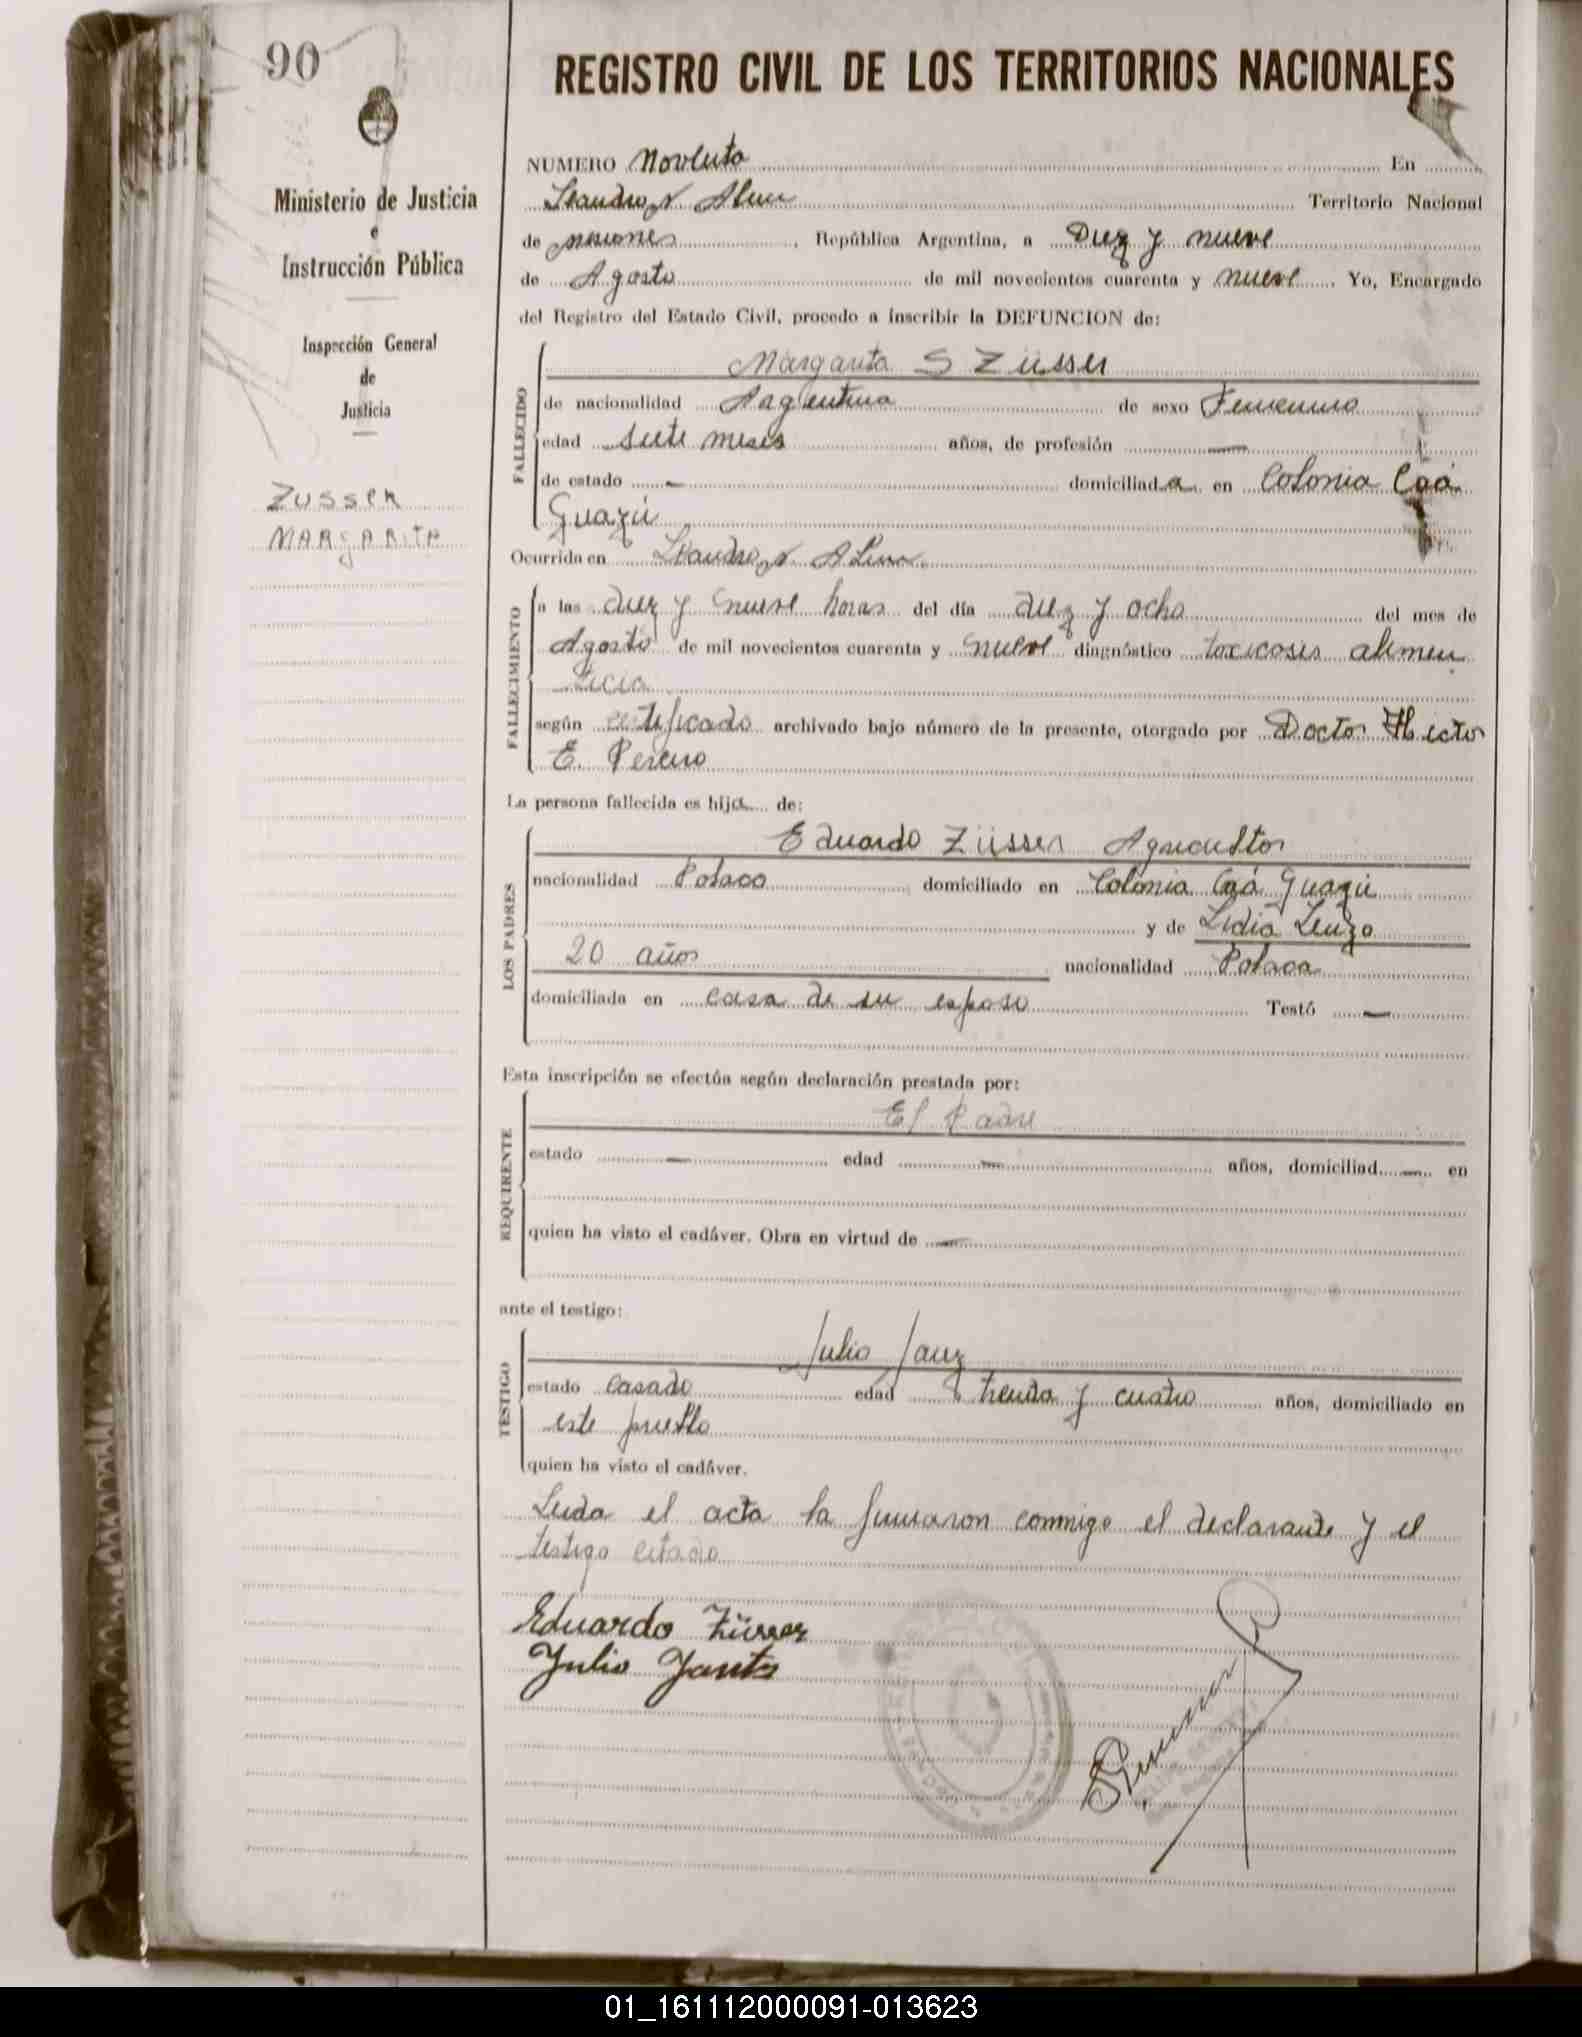 90
REGISTRO CIVIL DE LOS TERRITORIOS NACIONALES
Ministerio de Justicia
e
Instrucción Pública
Inspección General
de
Justicia
ZUSSER
MARGARITA
NUMERO Noventa En
Leandro N Alem Territorio Nacional
de misiones, República Argentina, a Diez y nueve
de Agosto de mil novecientos cuarenta y nueve. Yo, Encargado
del Registro del Estado Civil, procedo a inscribir la DEFUNCION de:
FALLECIDO
Margarita S Züsser
de nacionalidad Argentina de sexo Femenino
edad siete meses años, de profesión —
de estado — domiciliada en Colonia Caá
Guazú
Ocurrida en Leandro N Alem
FALLECIMIENTO
a las diez y nueve horas del día diez y ocho del mes de
Agosto de mil novecientos cuarenta y nueve diagnóstico toxicosis alimen
ticia
según certificado archivado bajo número de la presente, otorgado por Doctor Hector
E.
La persona fallecida es hija de:
LOS PADRES
Eduardo Züsser Agricultor
nacionalidad Polaco domiciliado en Colonia Caá Guazú
y de Lidia
20 años nacionalidad Polaca
domiciliada en casa de su esposo Testó —
Esta inscripción se efectúa según declaración prestada por:
REQUIRENTE
El Padre
estado — edad — años, domiciliad — en
quien ha visto el cadáver. Obra en virtud de —
ante el testigo:
TESTIGO
Julio Janz
estado casado edad treinta y cuatro años, domiciliado en
este pueblo
quien ha visto el cadáver.
Leida el acta la firmaron conmigo el declarante y el
testigo citado
Eduardo Züsser
Julio Jantz
01_161112000091-013623